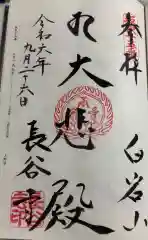 奉拝
白岩山
大悲殿
令和六年
九月二十六日
長谷寺